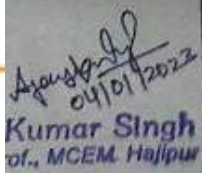 04/01/2022
Kumar Singh
of., MCEM. Hajipur